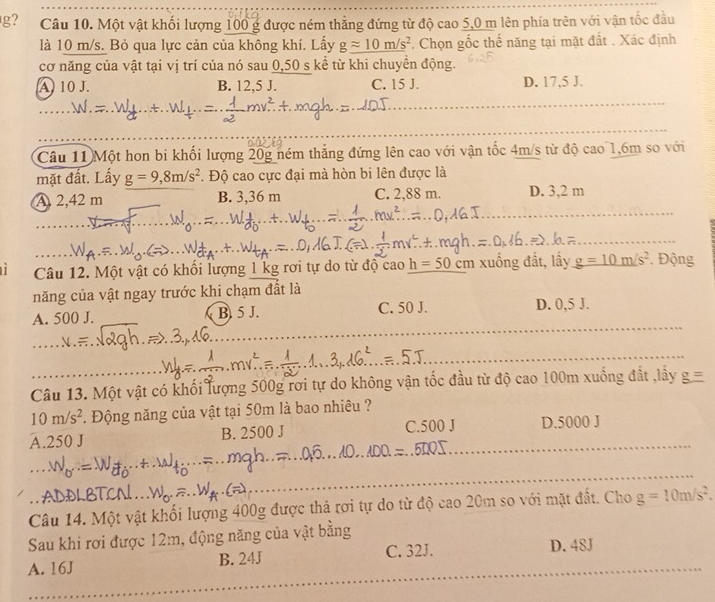 g?
0,1kg
Câu 10. Một vật khối lượng 100 g được ném thẳng đứng từ độ cao 5,0 m lên phía trên với vận tốc đầu
là 10 m/s. Bỏ qua lực cản của không khí. Lấy g ≈ 10 m/s². Chọn gốc thế năng tại mặt đất . Xác định
cơ năng của vật tại vị trí của nó sau 0,50 s kể từ khi chuyển động.
6,25
A. 10 J. B. 12,5 J. C. 15 J. D. 17,5 J.
W = Wđ + Wt = 1/2 mv² + mgh = 10J
0,02 kg
Câu 11 Một hon bi khối lượng 20g ném thẳng đứng lên cao với vận tốc 4m/s từ độ cao 1,6m so với
mặt đất. Lấy g = 9,8m/s². Độ cao cực đại mà hòn bi lên được là
A. 2,42 m B. 3,36 m C. 2,88 m. D. 3,2 m
W₀ = Wđ₀ + Wt₀ = 1/2 mv² = 0,16J
W_A = W₀ (=) Wđ_A + Wt_A = 0,16J (=) 1/2 mv² + mgh = 0,16 => h =
ì
Câu 12. Một vật có khối lượng 1 kg rơi tự do từ độ cao h = 50 cm xuống đất, lấy g = 10 m/s². Động
năng của vật ngay trước khi chạm đất là
A. 500 J. B. 5 J. C. 50 J. D. 0,5 J.
v = √2gh => 3,16
Wđ = 1/2 mv² = 1/2 . 1 . 3,16² = 5J
Câu 13. Một vật có khối lượng 500g rơi tự do không vận tốc đầu từ độ cao 100m xuống đất ,lấy g =
10 m/s². Động năng của vật tại 50m là bao nhiêu ?
A.250 J B. 2500 J C.500 J D.5000 J
W₀ = Wđ₀ + Wt₀ = mgh = 0,5 . 10 . 100 = 500J
ADĐLBTCN W₀ = W_A (=)
Câu 14. Một vật khối lượng 400g được thả rơi tự do từ độ cao 20m so với mặt đất. Cho g = 10m/s².
Sau khi rơi được 12m, động năng của vật bằng
A. 16J B. 24J C. 32J. D. 48J